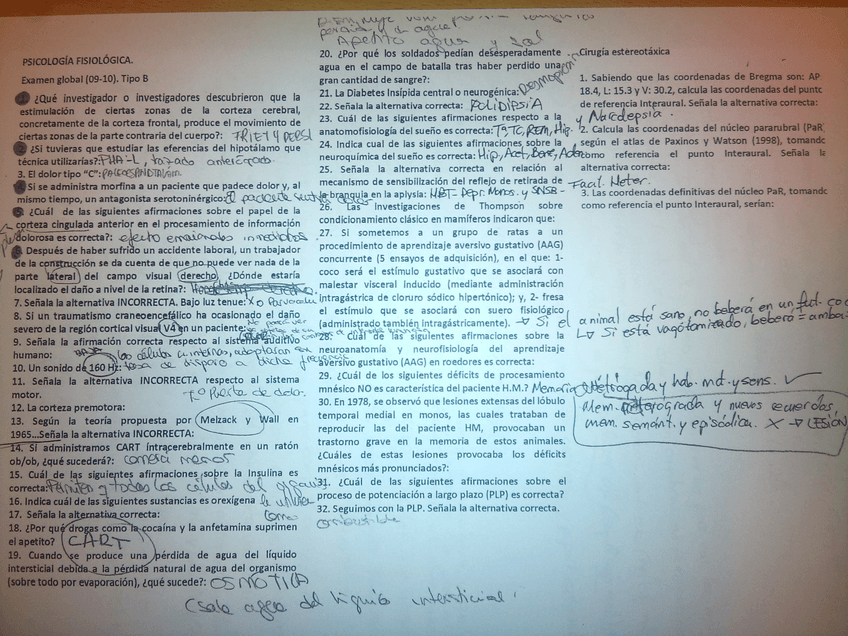 PSICOLOGÍA FISIOLÓGICA.
Examen global (09-10). Tipo B
1. ¿Qué investigador o investigadores descubrieron que la
estimulación de ciertas zonas de la corteza cerebral,
concretamente de la corteza frontal, produce el movimiento de
ciertas zonas de la parte contraria del cuerpo?:
2. ¿Si tuvieras que estudiar las eferencias del hipotálamo que
técnica utilizarías?: PHA-L, trazado anterógrado.
3. El dolor tipo "C":
4. Si se administra morfina a un paciente que padece dolor y, al
mismo tiempo, un antagonista serotoninérgico: El paciente
5. ¿Cuál de las siguientes afirmaciones sobre el papel de la
corteza cingulada anterior en el procesamiento de información
dolorosa es correcta?: efecto emocionales inmediatos.
6. Después de haber sufrido un accidente laboral, un trabajador
de la construcción se da cuenta de que no puede ver nada de la
parte lateral del campo visual derecho. ¿Dónde estaría
localizado el daño a nivel de la retina?:
7. Señala la alternativa INCORRECTA. Bajo luz tenue:
8. Si un traumatismo craneoencefálico ha ocasionado el daño
severo de la región cortical visual V4 en un paciente:
9. Señala la afirmación correcta respecto al sistema auditivo
humano:
10. Un sonido de 160 Hz: tasa de disparo a dicha frecuencia
11. Señala la alternativa INCORRECTA respecto al sistema
motor.
12. La corteza premotora:
13. Según la teoría propuesta por Melzack y Wall en
1965...Señala la alternativa INCORRECTA:
14. Si administramos CART intracerebralmente en un ratón
ob/ob, ¿qué sucederá?: comerá menos
15. Cuál de las siguientes afirmaciones sobre la Insulina es
correcta: Permiten q todas las células del
16. Indica cuál de las siguientes sustancias es orexígena
17. Señala la alternativa correcta: como
18. ¿Por qué drogas como la cocaína y la anfetamina suprimen
el apetito? CART
19. Cuando se produce una pérdida de agua del líquido
intersticial debida a la pérdida natural de agua del organismo
(sobre todo por evaporación), ¿qué sucede?: OSMOTICA
(sale agua del líquido intersticial.
perdida de agua
Apetito agua y sal
20. ¿Por qué los soldados pedían desesperadamente
agua en el campo de batalla tras haber perdido una
gran cantidad de sangre?:
21. La Diabetes Insípida central o neurogénica: Desmopresin
22. Señala la alternativa correcta: POLIDIPSIA
23. Cuál de las siguientes afirmaciones respecto a la
anatomofisiología del sueño es correcta: REM, Hip. y Narcolepsia.
24. Indica cual de las siguientes afirmaciones sobre la
neuroquímica del sueño es correcta: Hip, Act,
25. Señala la alternativa correcta en relación al
mecanismo de sensibilización del reflejo de retirada de
la branquia en la aplysia: Facil. Heter.
26. Las investigaciones de Thompson sobre
condicionamiento clásico en mamíferos indicaron que:
27. Si sometemos a un grupo de ratas a un
procedimiento de aprendizaje aversivo gustativo (AAG)
concurrente (5 ensayos de adquisición), en el que: 1-
coco será el estímulo gustativo que se asociará con
malestar visceral inducido (mediante administración
intragástrica de cloruro sódico hipertónico); y, 2- fresa
el estímulo que se asociará con suero fisiológico
(administrado también intragástricamente). → Si el animal está sano, no beberá en un fut. coco
↳ Si está vagotomizado, beberá = ambos
28. Cuál de las siguientes afirmaciones sobre la
neuroanatomía y neurofisiología del aprendizaje
aversivo gustativo (AAG) en roedores es correcta:
29. ¿Cuál de los siguientes déficits de procesamiento
mnésico NO es característica del paciente H.M.? Memoria retrógrada y hab. mot. y sens. ✓
30. En 1978, se observó que lesiones extensas del lóbulo
temporal medial en monos, las cuales trataban de
reproducir las del paciente HM, provocaban un
trastorno grave en la memoria de estos animales.
¿Cuáles de estas lesiones provocaba los déficits
mnésicos más pronunciados?:
31. ¿Cuál de las siguientes afirmaciones sobre el
proceso de potenciación a largo plazo (PLP) es correcta?
32. Seguimos con la PLP. Señala la alternativa correcta.
combustible
Cirugía estereotáxica
1. Sabiendo que las coordenadas de Bregma son: AP:
18.4, L: 15.3 y V: 30.2, calcula las coordenadas del punto
de referencia Interaural. Señala la alternativa correcta:
2. Calcula las coordenadas del núcleo pararubral (PaR)
según el atlas de Paxinos y Watson (1998), tomando
como referencia el punto Interaural. Señala la
alternativa correcta:
3. Las coordenadas definitivas del núcleo PaR, tomando
como referencia el punto Interaural, serían:
Mem. y nuevos recuerdos
mem. semánt. y episódica. X → LESIÓN